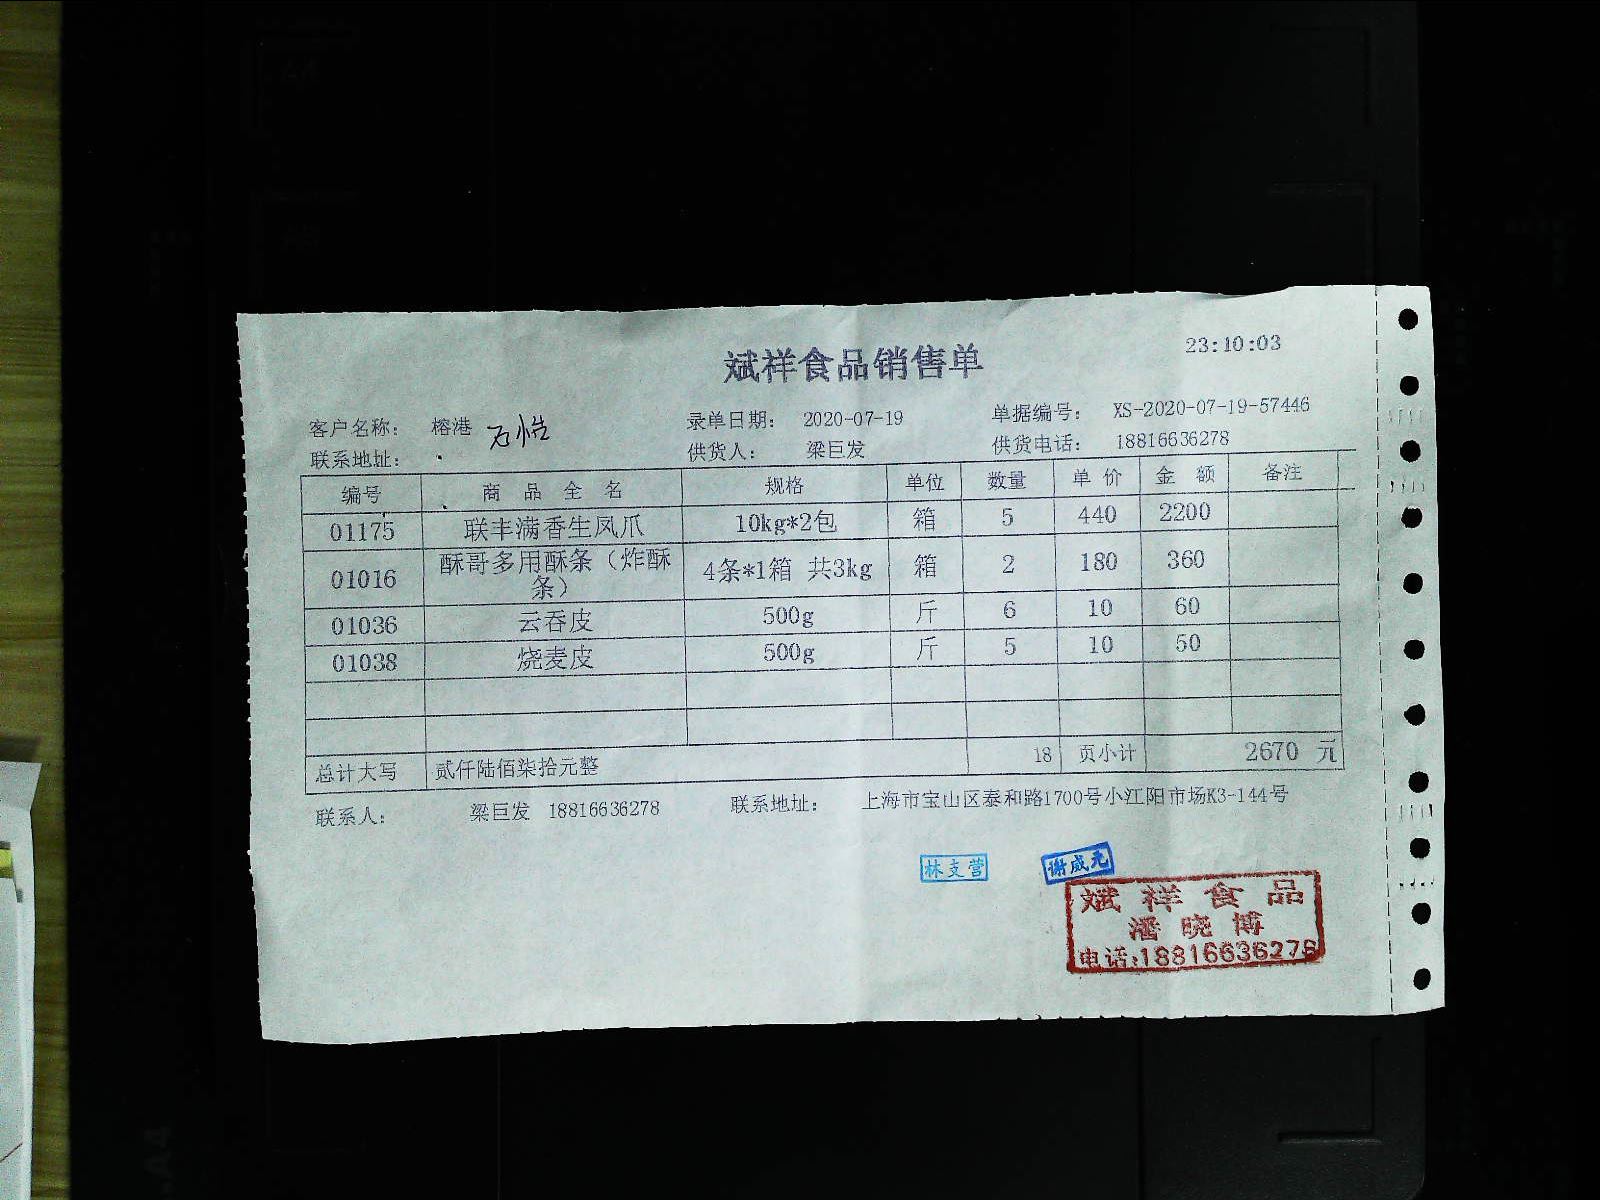 斌祥食品销售单
23:10:03
客户名称： 榕港 录单日期： 2020-07-19 单据编号： XS-2020-07-19-57446
联系地址： 供货人： 梁巨发 供货电话： 18816636278
编号 商品全名 规格 单位 数量 单价 金额 备注
01175 联丰满香生凤爪 10kg*2包 箱 5 440 2200
01016 酥哥多用酥条（炸酥条） 4条*1箱 共3kg 箱 2 180 360
01036 云吞皮 500g 斤 6 10 60
01038 烧麦皮 500g 斤 5 10 50
总计大写 贰仟陆佰柒拾元整 18 页小计 2670 元
联系人： 梁巨发 18816636278 联系地址： 上海市宝山区泰和路1700号小江阳市场K3-144号
林支营 谢咸元
斌祥食品
潘晓博
电话:18816636278